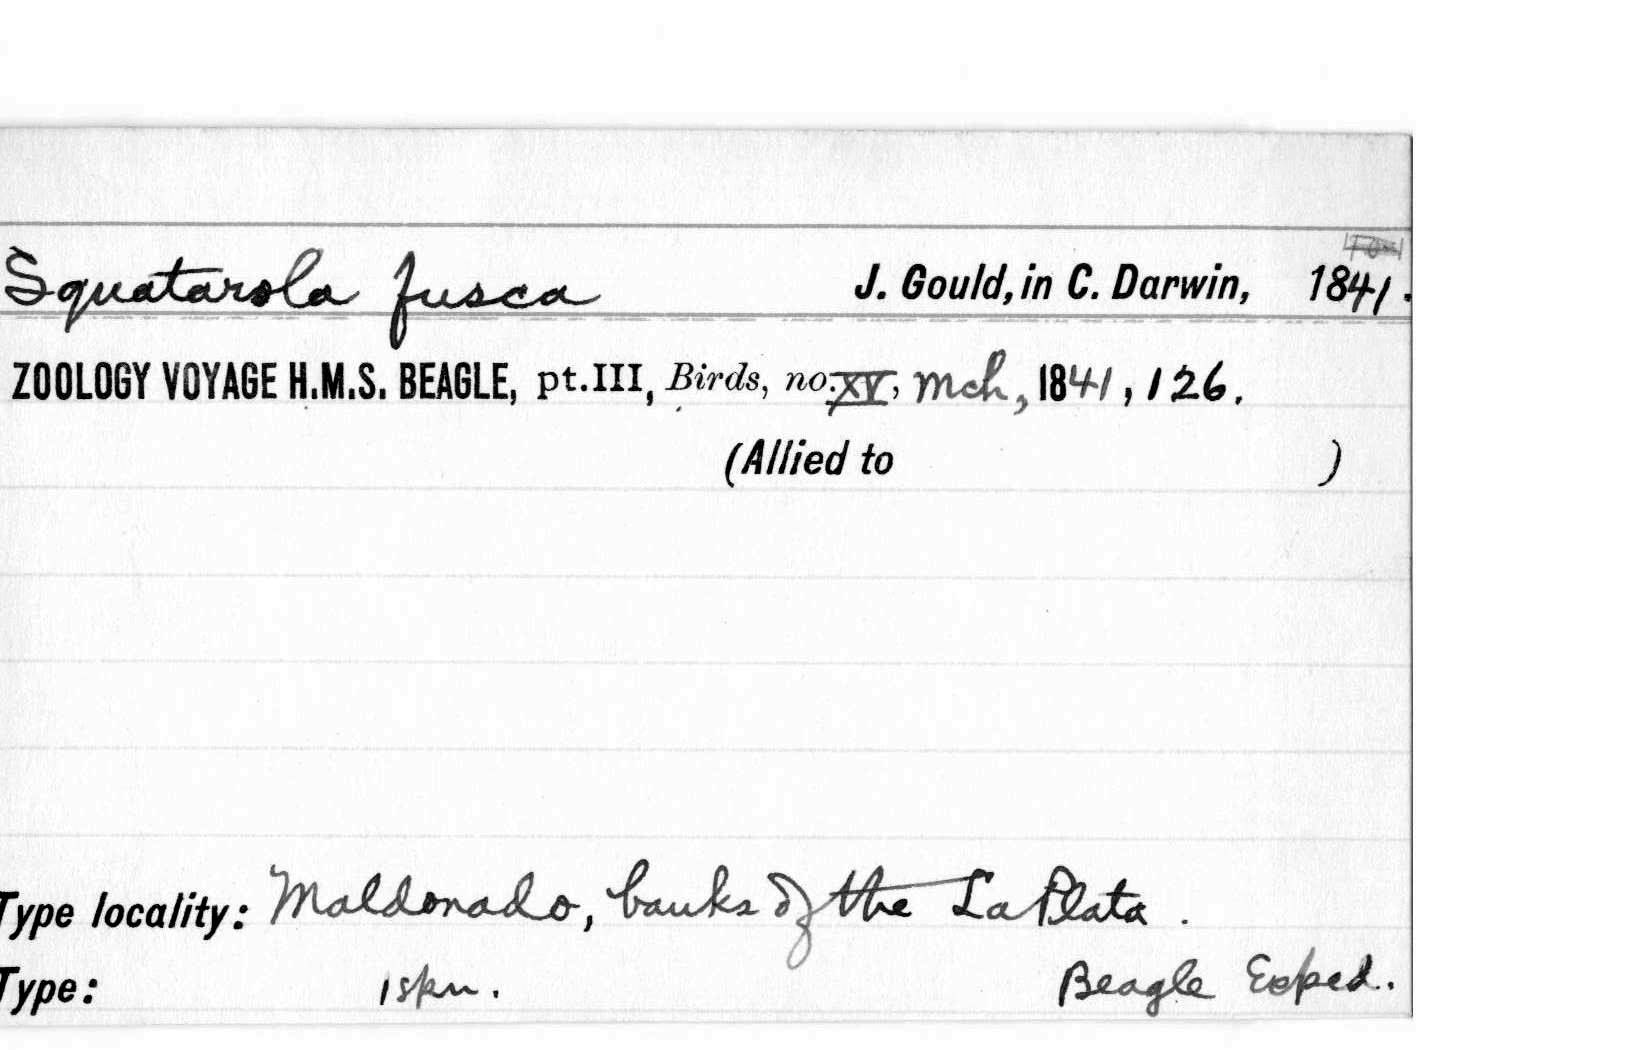 Squatarola fusca J. Gould, in C. Darwin, 1841.
ZOOLOGY VOYAGE H.M.S. BEAGLE, pt.III, Birds, no. XV, Mch, 1841, 126.
(Allied to )
Type locality: Maldonado, banks of the La Plata.
Type: 1 spn. Beagle Exped.